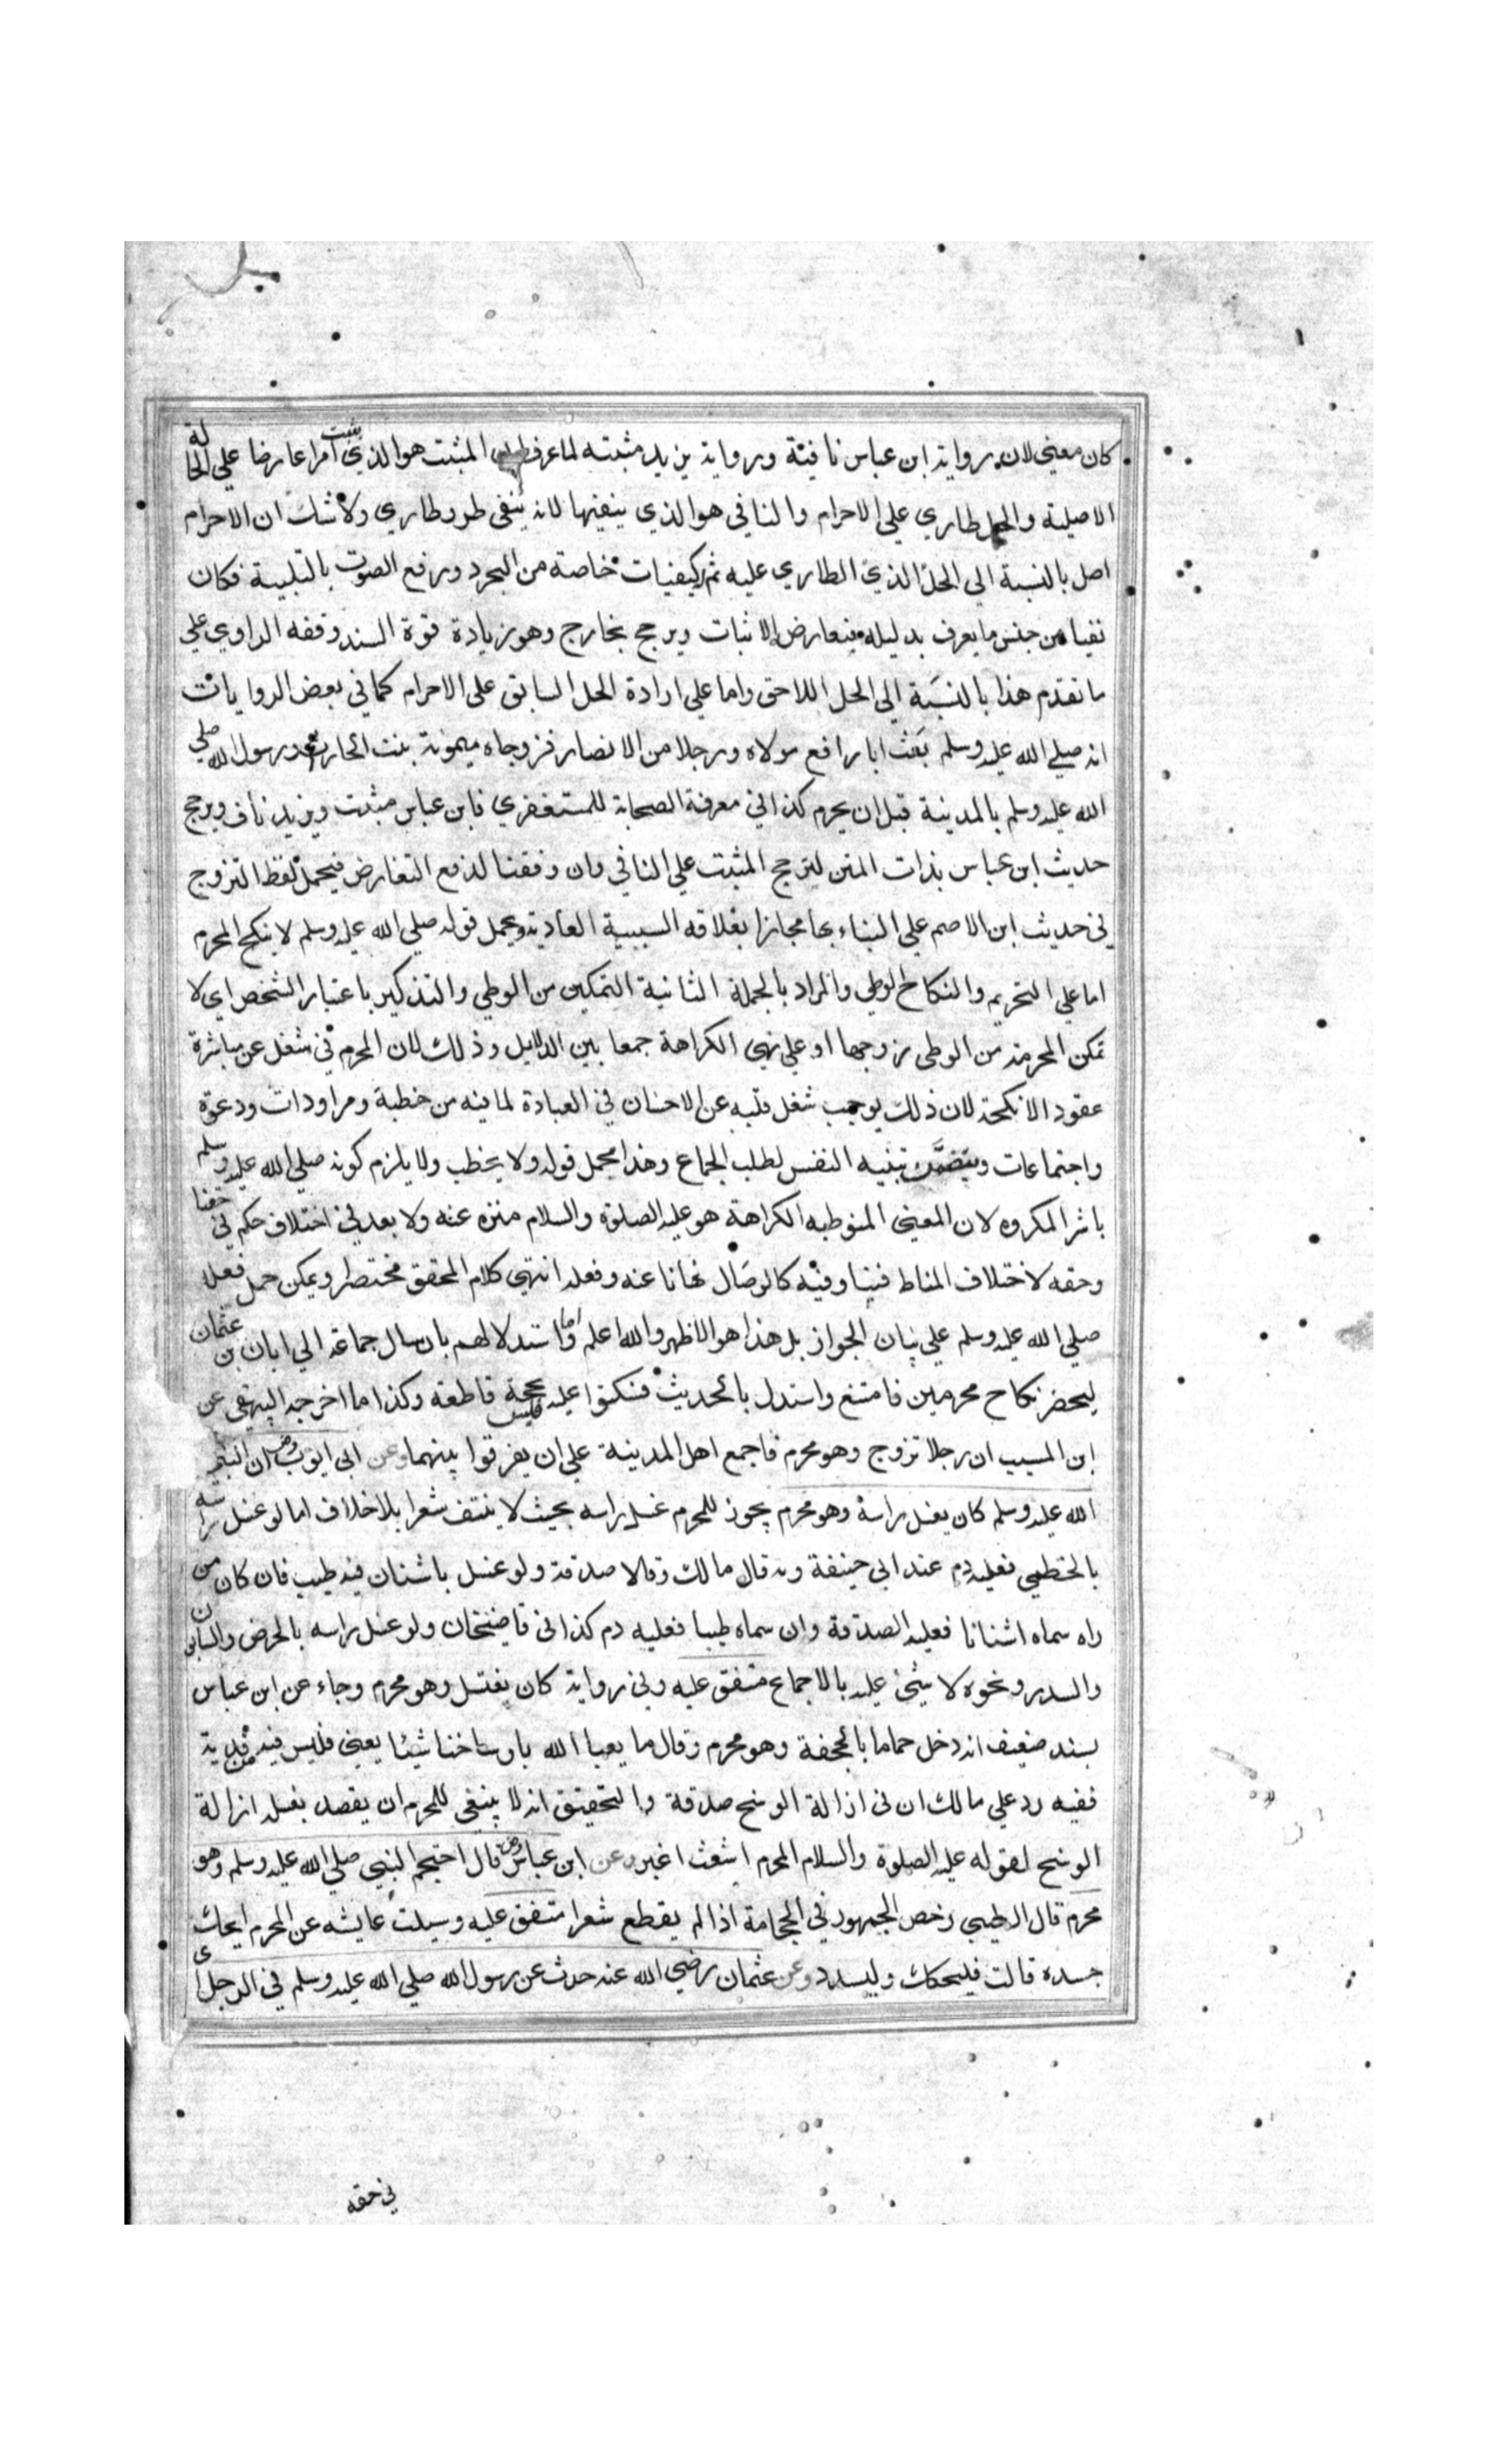 كان معني لان رواية ابن عباس نافية ورواية يزيد مثبته لما عرف ان المثبت هو الذي يثبت امرا عارضا علي الحالة
الاصلية والحل طاري علي الاحرام والنافي هو الذي ينفيها لانه ينفي طرو طاري ولا شك ان الاحرام
اصل بالنسبة الي الحل الذي الطاري عليه ثم كيفيات خاصة من التجرد ورفع الصوت بالتلبية فكان
نفيا من جنس ما يعرف بدليله فيعارض الاثبات ويرجح بخارج وهو زيادة قوة السند وفقه الراوي علي
ما تقدم هذا بالنسبة الي الحل اللاحق واما علي ارادة الحل السابق علي الاحرام كما في بعض الروايات
انه صلي الله عليه وسلم بعث ابا رافع مولاه ورجلا من الانصار فزوجاه ميمونة بنت الحارث ورسول الله صلي
الله عليه وسلم بالمدينة قبل ان يحرم كذا في معرفة الصحابة للمستغفري فابن عباس مثبت ويزيد ناف ويرجح
حديث ابن عباس بذات المتن لترجح المثبت علي النافي وان وفقنا لدفع التعارض فيحمل لفظ التزوج
في حديث ابن الاصم علي البناء بها مجازا بعلاقه السببية العادية ويحمل قوله صلي الله عليه وسلم لا ينكح المحرم
اما علي التحريم والنكاح الوطي والمراد بالجملة الثانية التمكين من الوطي والتذكير باعتبار الشخص اي لا
تمكن المحرمة من الوطي زوجها او علي نهي الكراهة جمعا بين الدلايل وذلك لان المحرم في شغل عن مباشرة
عقود الانكحة لان ذلك يوجب شغل قلبه عن الاحسان في العبادة لما فيه من خطبة ومراودات ودعوة
واجتماعات ويتضمن تنبيه النفس لطلب الجماع وهذا محمل قوله ولا يخطب ولا يلزم كونه صلي الله عليه وسلم
باشر المكروه لان المعني المنوط به الكراهة هو عليه الصلوة والسلام منزه عنه ولا بعد في اختلاف حكم في حقنا
وحقه لاختلاف المناط فينا وفيه كالوصال نهانا عنه وفعله انتهي كلام المحقق مختصرا ويمكن حمل فعله
صلي الله عليه وسلم علي بيان الجواز بل هذا هو الاظهر والله اعلم واما استدلالهم بارسال جماعة الي ابان بن عثمان
ليحضر نكاح محرمين فامتنع واستدل بالحديث فسكتوا عليه فليس بحجة قاطعة وكذا ما اخرجه البيهقي عن
ابن المسيب ان رجلا تزوج وهو محرم فاجمع اهل المدينة علي ان يفرقوا بينهما وعن ابي ايوب رض ان النبي
الله عليه وسلم كان يغسل راسه وهو محرم يجوز للمحرم غسل راسه بحيث لا ينتف شعرا بلا خلاف اما لو غسل راسه
بالخطمي فعليه دم عند ابي حنيفة وبه قال مالك وقالا صدقة ولو غسل باشنان فيه طيب فان كان من
راه سماه اشنانا فعليه الصدقة وان سماه طيبا فعليه دم كذا في قاضيخان ولو غسل راسه بالحرض والصابون
والسدر ونحوه لا شئ عليه بالاجماع متفق عليه وفي رواية كان يغتسل وهو محرم وجاء عن ابن عباس
بسند ضعيف انه دخل حماما بالجحفة وهو محرم وقال ما يعبا الله باوساخنا شيئا يعني فليس فيه من فدية
ففيه رد علي مالك ان في ازالة الوسخ صدقة والتحقيق انه لا ينبغي للمحرم ان يقصد بغسله ازالة
الوسخ لقوله عليه الصلوة والسلام المحرم اشعث اغبر وعن ابن عباس رض قال احتجم النبي صلي الله عليه وسلم وهو
محرم قال الطيبي رخص الجمهور في الحجامة اذا لم يقطع شعرا متفق عليه وسيلت عايشه عن المحرم ايحك
جسده قالت فليحكك وليسدد وعن عثمان رضي الله عنه حدث عن رسول الله صلي الله عليه وسلم في الرجل اي
في حقه